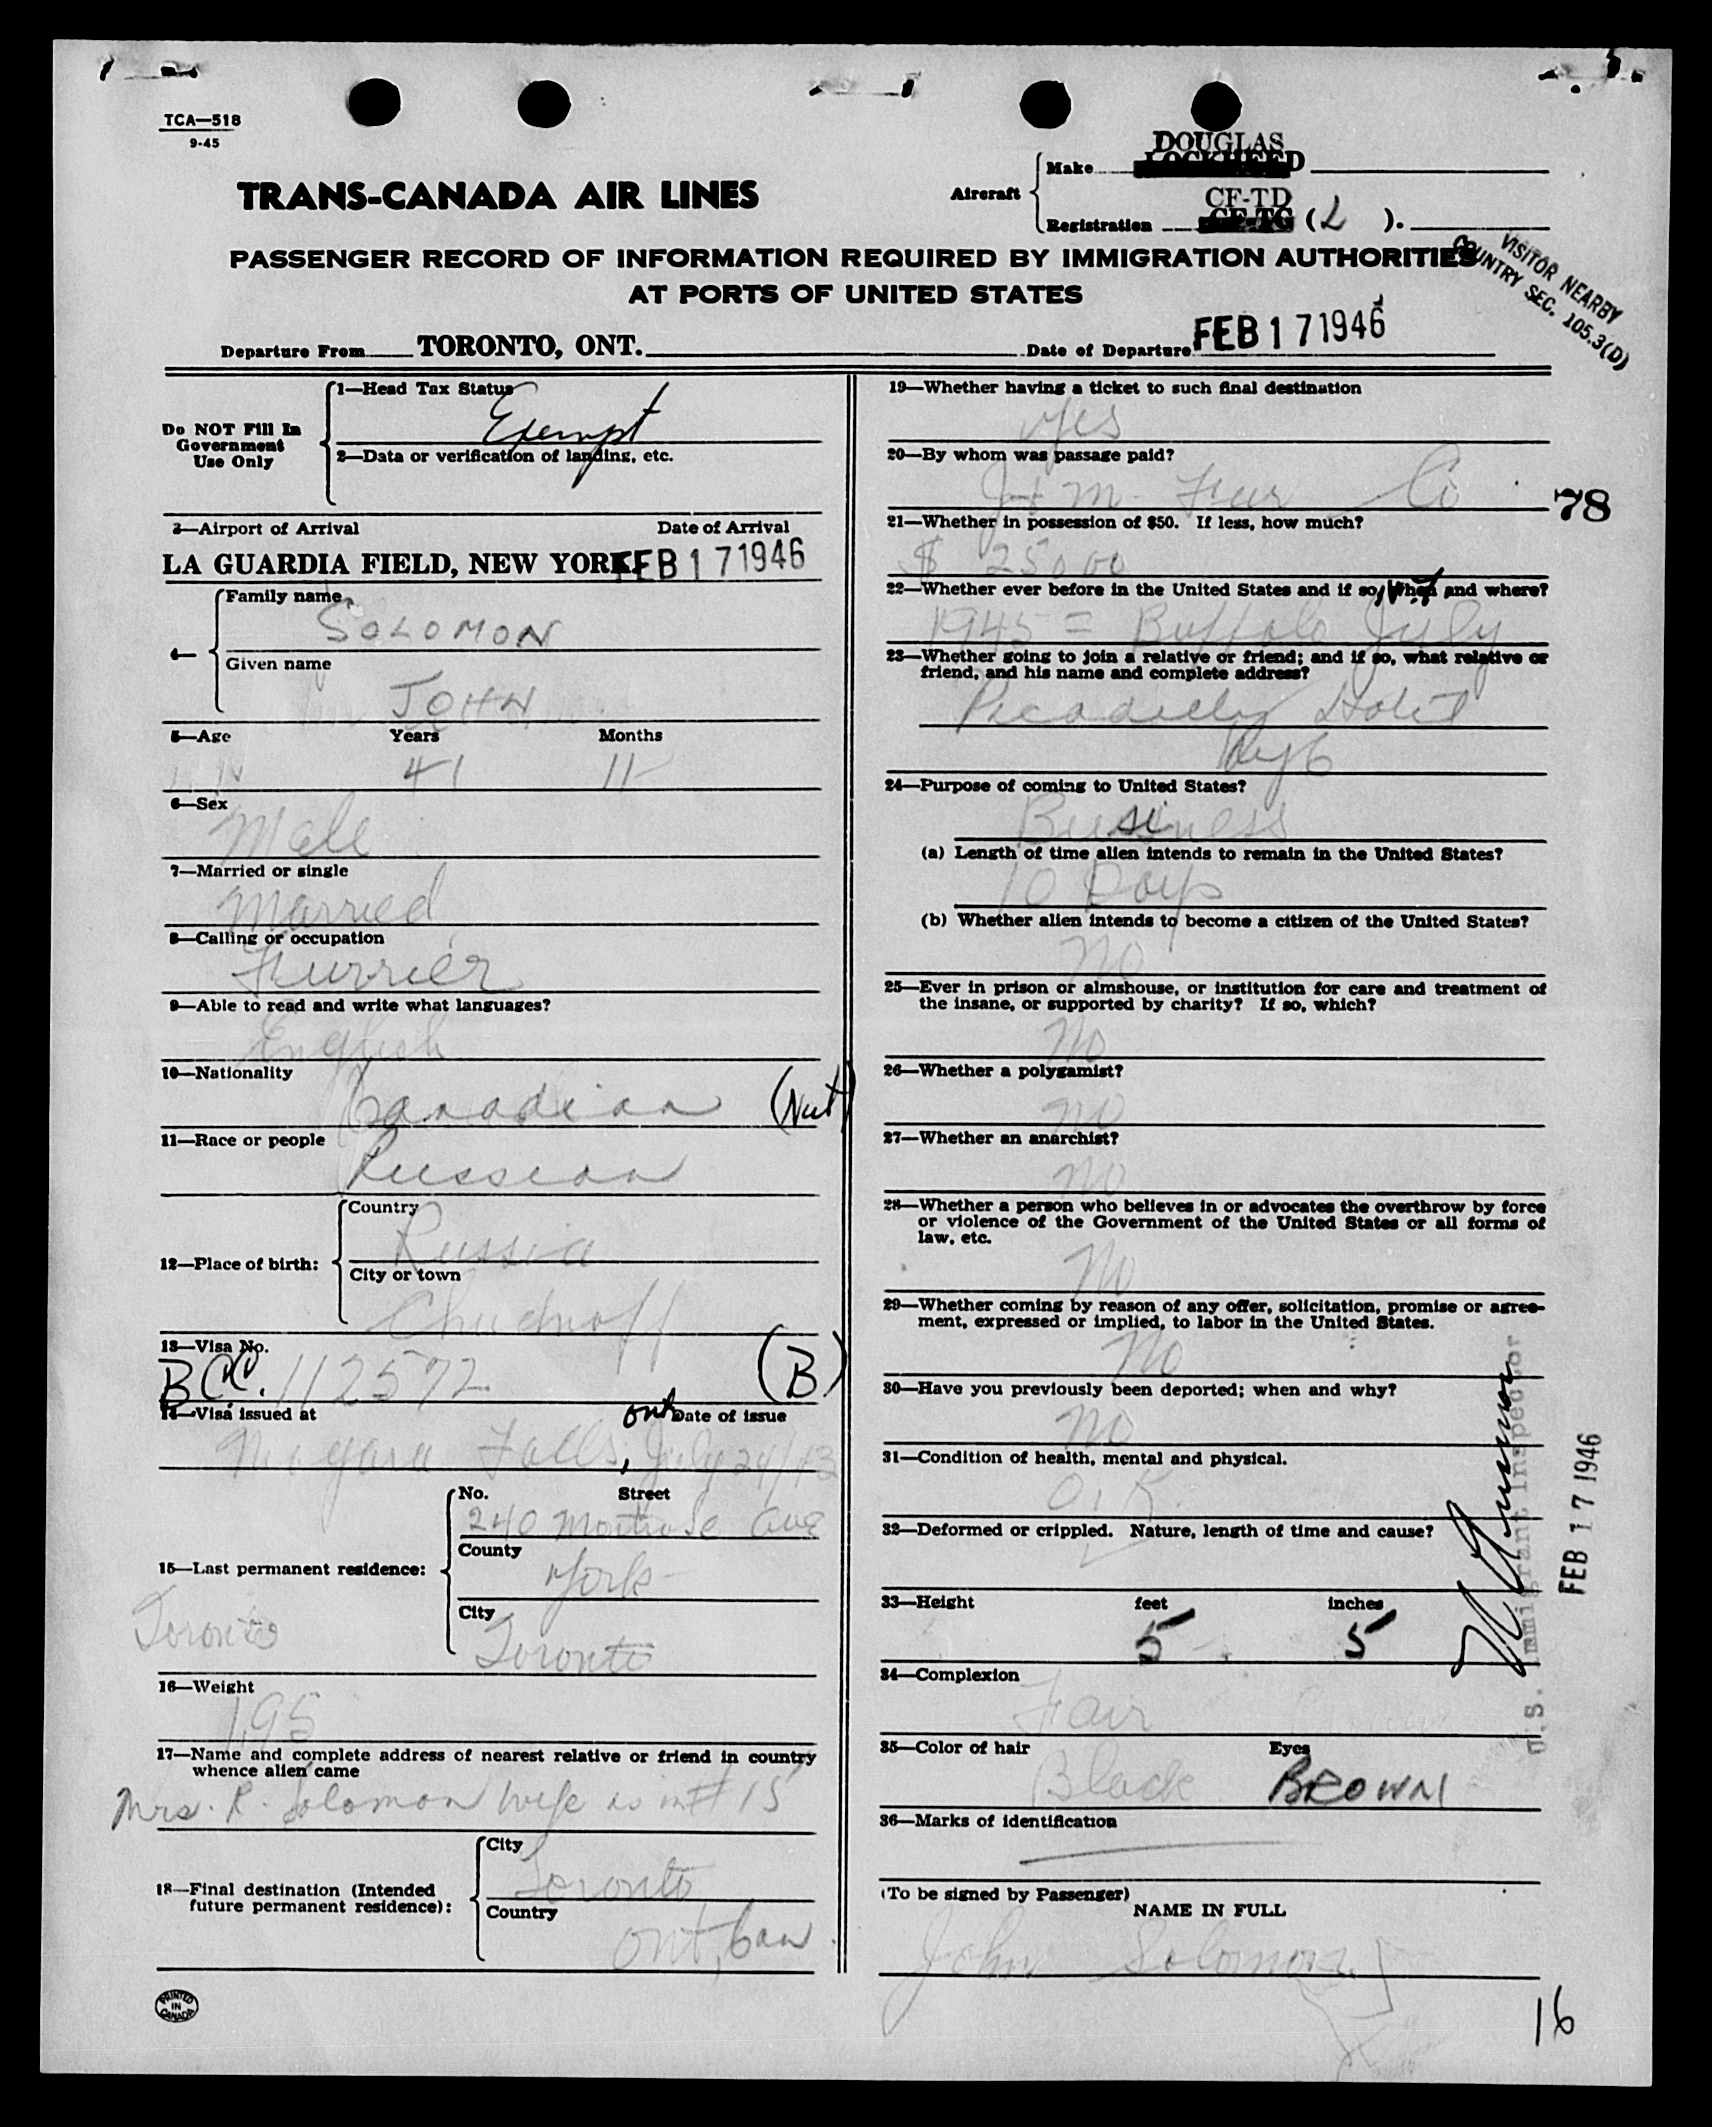 TCA—518
9-45
DOUGLAS
LOCKHEED
Aircraft
Make
CF-TD
CF-TG
Registration (L).
TRANS-CANADA AIR LINES
PASSENGER RECORD OF INFORMATION REQUIRED BY IMMIGRATION AUTHORITIES
AT PORTS OF UNITED STATES
VISITOR NEARBY
COUNTRY SEC. 105.3(D)
Departure From TORONTO, ONT. Date of Departure FEB 17 1946
Do NOT Fill In
Government
Use Only
1—Head Tax Status
Exempt
2—Data or verification of landing, etc.
3—Airport of Arrival Date of Arrival
LA GUARDIA FIELD, NEW YORK FEB 17 1946
4—
Family name
SOLOMON
Given name
JOHN
5—Age Years Months
41 11
6—Sex
Male
7—Married or single
Married
8—Calling or occupation
Furrier
9—Able to read and write what languages?
English
10—Nationality
Canadian (Nat)
11—Race or people
Russian
12—Place of birth:
Country
Russia
City or town
13—Visa No.
BCC. 112572 (B)
14—Visa issued at Date of issue
Niagara Falls, Ont July 24/
15—Last permanent residence:
No. Street
240 Montrose Ave
County
York
City
Toronto
Toronto
16—Weight
195
17—Name and complete address of nearest relative or friend in country
whence alien came
Mrs. R. Solomon wife as in # 15
18—Final destination (Intended
future permanent residence):
City
Toronto
Country
Ont, Can.
19—Whether having a ticket to such final destination
yes
20—By whom was passage paid?
J + M. Fur Co
78
21—Whether in possession of $50. If less, how much?
$ 250 00
22—Whether ever before in the United States and if so, when and where?
1945 = Buffalo July
23—Whether going to join a relative or friend; and if so, what relative or
friend, and his name and complete address?
Picadilly Hotel
24—Purpose of coming to United States?
Business
(a) Length of time alien intends to remain in the United States?
10 Days
(b) Whether alien intends to become a citizen of the United States?
No
25—Ever in prison or almshouse, or institution for care and treatment of
the insane, or supported by charity? If so, which?
No
26—Whether a polygamist?
No
27—Whether an anarchist?
No
28—Whether a person who believes in or advocates the overthrow by force
or violence of the Government of the United States or all forms of
law, etc.
No
29—Whether coming by reason of any offer, solicitation, promise or agree-
ment, expressed or implied, to labor in the United States.
No
30—Have you previously been deported; when and why?
No
31—Condition of health, mental and physical.
O.K.
32—Deformed or crippled. Nature, length of time and cause?
33—Height feet inches
5 5
34—Complexion
Fair
35—Color of hair Eyes
Black BROWN
36—Marks of identification
U.S. Immigrant Inspector
FEB 17 1946
(To be signed by Passenger)
NAME IN FULL
John Solomon
PRINTED
IN
CANADA
16